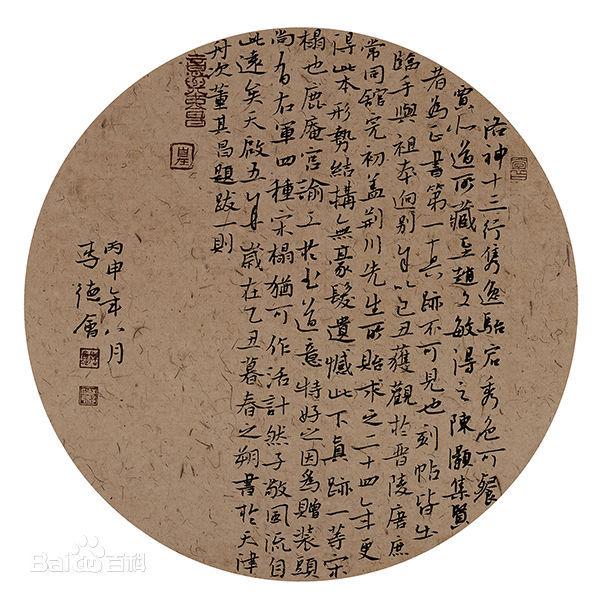 洛神十三行雋逸駘宕秀色可餐
賈似道所藏至趙文敏得之陳灝集賢
者為正書第一真跡不可見也刻帖皆出
臨手與祖本迥別自以己丑獲觀於晉陵唐庶
常同館完初蓋荊川先生所貽求之二十四年更
得此本形勢結構無豪髮遺憾此下真跡一等宋
榻也鹿庵宮諭工於書道意特好之因為贈裝頭
尚有右軍四種宋榻猶可作活計然子敬風流自
此遠矣天啟五年歲在乙丑暮春之朔書於天津
舟次董其昌題跋一則
丙申年八月
李德會
Bai百科